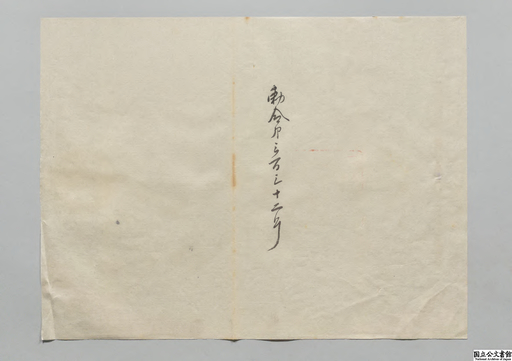 勅令第三百三十二号
国立公文書館
National Archives of Japan